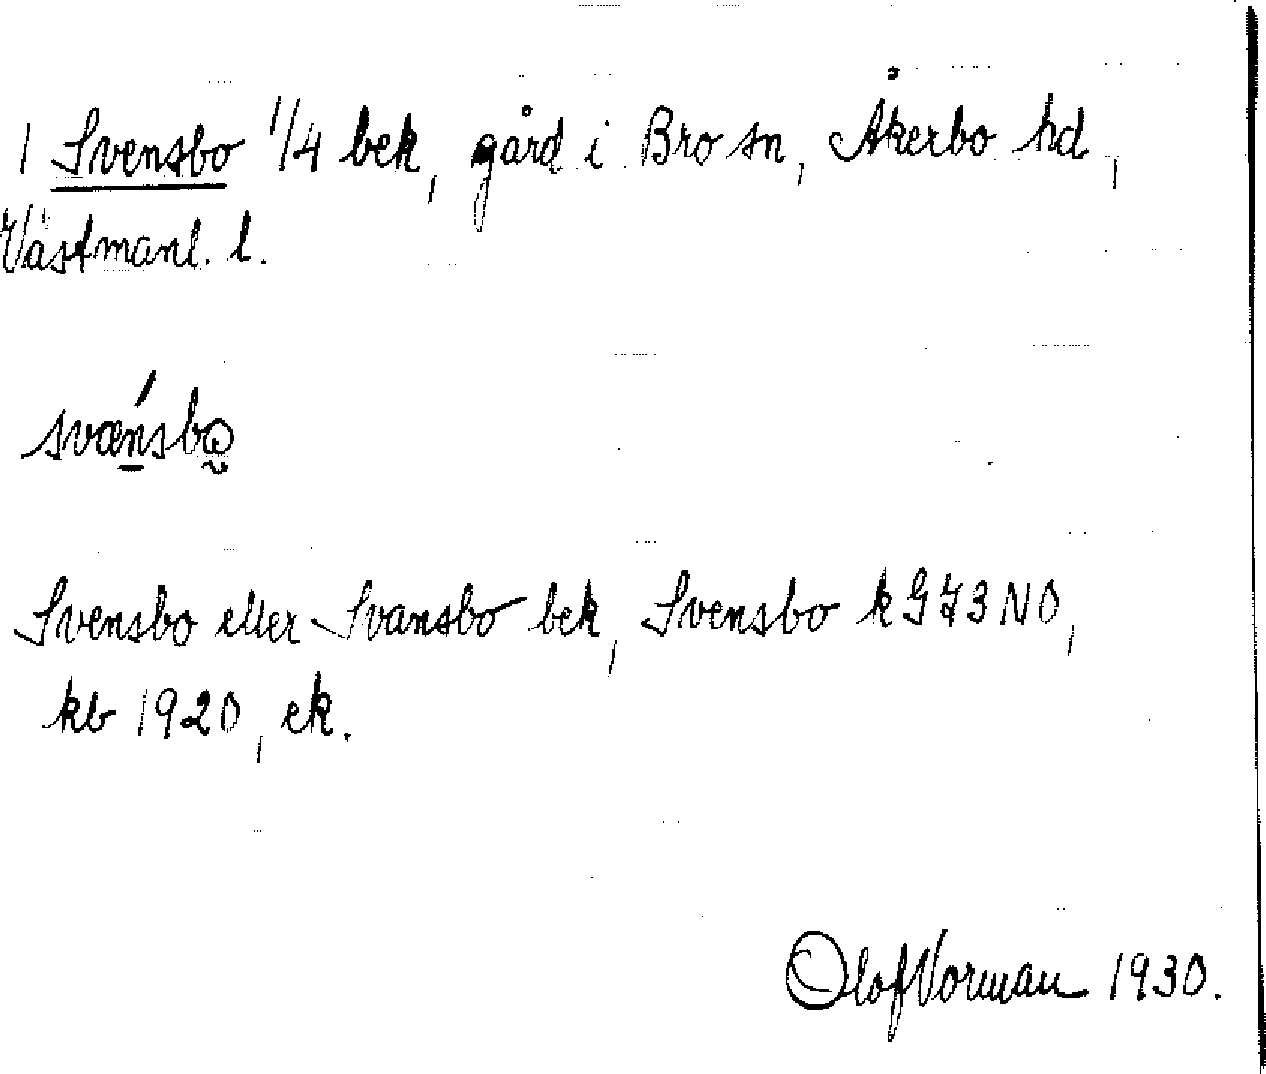 1 Svensbo 1/4 bek, gård i Bro sn, Åkerbo hd,
Västmanl. l.
svænsbo
Svensbo eller Svansbo bek, Svensbo k G73NO,
kb 1920, ek.
Olof Norman 1930.